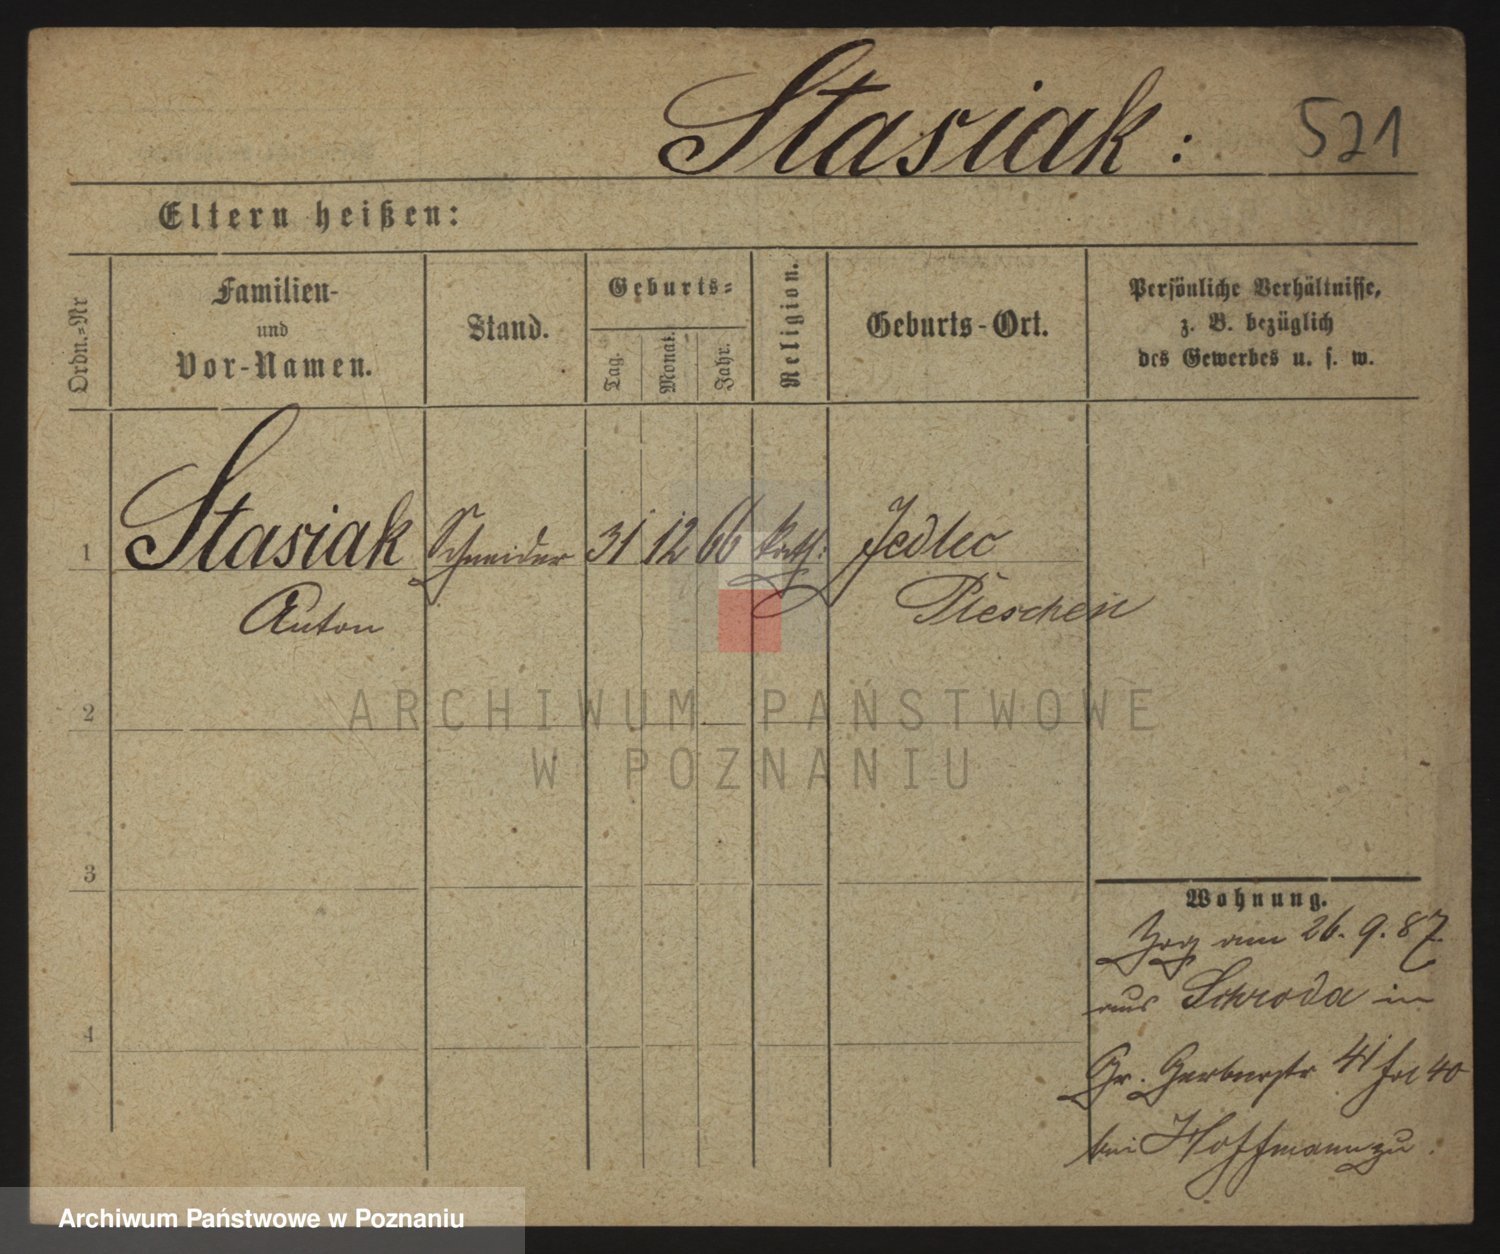 Stasiak: 521
Eltern heißen:
Ordn.-Nr
Familien-
und
Vor-Namen.
Stand.
Geburts-
Tag.
Monat.
Jahr.
Religion.
Geburts-Ort.
Persönliche Verhältnisse,
z. B. bezüglich
des Gewerbes u. s. w.
1 Stasiak Schneider 31 12 66 kath: Jedlec
Anton Pleschen
2
3
4
ARCHIWUM PAŃSTWOWE
W POZNANIU
Wohnung.
Zog am 26. 9. 87
aus Schroda in
Gr. Gerberstr 41 fol 40
bei Hoffmann zu.
Archiwum Państwowe w Poznaniu